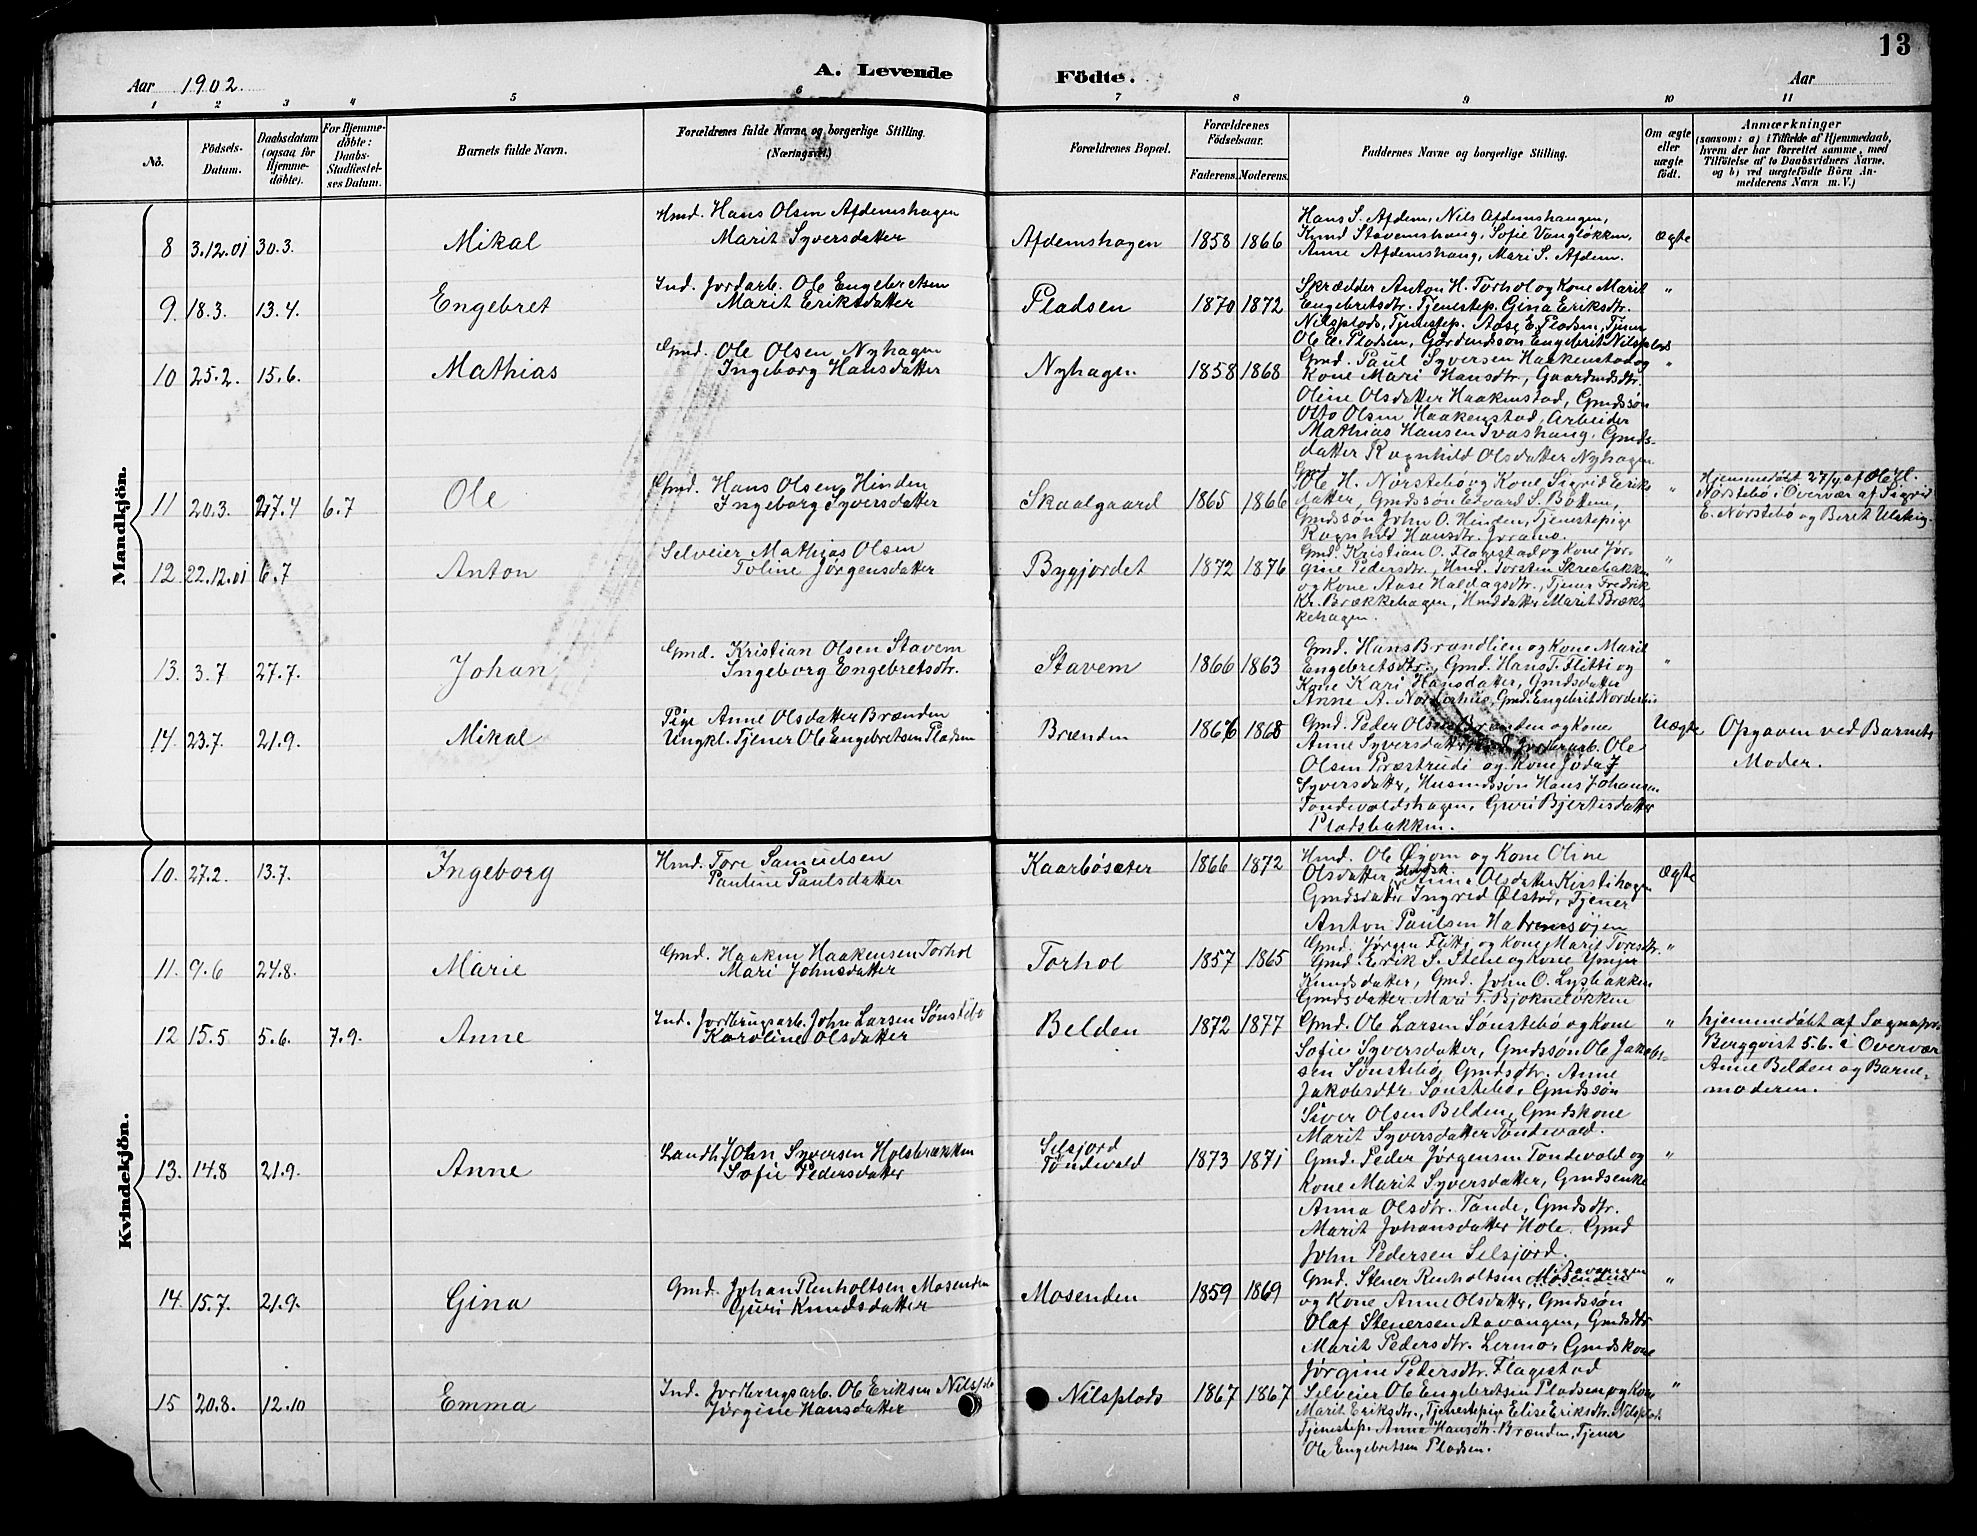 13
Aar 1902.
A. Levende Födte.
Aar
1 2 3 4 5 6 7 8 9 10 11
No.
Födsels-Datum.
Daabsdatum (ogsaa for Hjemme-döbte).
For Hjemme-döbte: Daabs-Stadfæstel-ses Datum.
Barnets fulde Navn.
Forældrenes fulde Navne og borgerlige Stilling. (Næringsvei.)
Forældrenes Bopæl.
Forældrenes Födselsaar.
Faderens. Moderens.
Faddernes Navne og borgerlige Stilling.
Om ægte eller uægte födt.
Anmærkninger
(saasom: a) i Tilfælde af Hjemmedaab,
hvem der har forrettet samme, med
Tilföielse af to Daabsvidners Navne,
og b) ved uægtefödte Börn An-
melderens Navn m. V.)
Mandkjön.
8 3.12.01 30.3. Mikal
Hmd. Hans Olsen Afdemshagen
Marit Syversdatter
Afdemshagen 1858 1866
Hans S. Afdem, Nils Afdemshaugen,
Stavemshaug, Sofie Vangløkken,
Anne Afdemshaug, Mari S. Afdem.
ægte
9. 18.3. 13.4. Engebret
Ind. Jordarb. Ole Engebretsen
Marit Eriksdatter
Pladsen 1870 1872
Skrædder Anton H. Torhol og Kone Marit
Engebretsdtr. Tjenestep. Gina Eriksdtr.
Nilsplads, Tjenestep. Aase E. Pladsen, Tjener
Ole E. Pladsen, Gårdmdssøn Engebrit Nilsplads
"
10 25.2. 15.6. Mathias
Gmd. Ole Olsen Nyhagen
Ingeborg Hansdatter
Nyhagen 1858 1868
Gmd. Paul Syversen Haakenstad og
Kone Mari Hansdtr, Gaardmdsdtr.
Oline Olsdatter Haakenstad, Gmdssøn
Otto Olsen Haakenstad, Arbeider
Mathias Hansen Ivashaug, Gmds-
datter Ragnhild Olsdatter Nyhagen
"
11 20.3. 27.4 6.7 Ole
Gmd. Hans Olsen Hinden
Ingeborg Syversdatter
Skaalgaard 1865 1866
Gmd
Ole H. Nørstebø og Kone Sigrid Eriks
datter, Gmdssøn Edvard S. Botten,
Gmdssøn John O. Hinden, Tjenestepige
Ragnhild Hansdtr. Joramo.
"
Hjemmedøbt 27/4 af Ole H.
Nørstebø i Overvær af Sigrid
E. Nørstebø og Beret Ulateig.
12 22.12.01 6.7 Anton
Selveier Mathias Olsen
Toline Jørgensdatter
Bygjordet 1872 1876
Gmd. Kristian O. Flagestad og Kone Jør-
gine Pedersdtr., Hmd. Torsten Skredbakken
og Kone Aase Haldagsdtr., Tjener Fredrik
Kr. Brækkehagen, Hmddatter Marit Bræk-
kehagen.
"
13. 3.7 27.7. Johan
Gmd. Kristian Olsen Stavem
Ingeborg Engebretsdtr.
Stavem 1866 1863
Gmd. Hans Brandlien og Kone Marit
Engebretsdtr., Gmd. Hans T. Flitti og
Kone Kari Hansdatter, Gmdsdatter
Anne A. Norderhus, Gmd. Engebrit Norderhus
"
14. 23.7. 21.9. Mikal
Pige Anne Olsdatter Brænden
Ungkl. Tjener Ole Engebretsen Pladsen
Brænden 1876 1868
Gmd. Peder Olsen Brænden og Kone
Anne Syversdatter, Jordarb. Ole
Olsen Præstrudi og Kone
Syversdatter, Husmdssøn Hans Johansen
Tondevoldshagen, Guri Bjertisdatter
Pladsbakken.
Uægte
Opgaven ved Barnets
Moder.
Kvindekjön.
10. 27.2. 13.7. Ingeborg
Hmd. Tore Samuelsen
Pauline Paulsdatter
Kaarbösæter 1866 1872
Hmd. Ole Øyom og Kone Oline
Olsdatter, Anne Olsdatter Kirstihagen
Gmdsdatter Ingrid Ølstad, Tjener
Anton Paulsen
Ægte
11. 9.6 24.8. Marie
Gmd. Haaken Haakensen Torhol
Mari Johnsdatter
Torhol 1857 1865
Gmd. Jørgen Flitti og Kone Marit Toresdtr.
Gmd. Erik S. Stene og Kone Ynjer
Knudsdatter, Gmd. John O. Lysbakken
Gmdsdatter Mari T. Bjokneløkken
"
12 15.5 5.6. 7.9. Anne
Ind. Jordbrugsarb. John Larsen Sønstebø
Karoline Olsdatter
Belden 1872 1877
Gmd. Ole Larsen Sønstebø og Kone
Sofie Syversdatter, Gmdssøn Ole Jakob-
sen Sønstebø, Gmdsdtr. Anne
Jakobsdtr Sønstebø, Gmdssøn
Siver Olsen Belden, Gmdskone
Marit Syversdatter Tondevold.
"
hjemmedøbt af Sognepr.
Bergqvist 5.6. i Overvær
Anne Belden og Barne-
moderen.
13. 14.8 21.9. Anne
Landh. John Syversen Holsbrækken
Sofie Pedersdatter
Selsjord
Tondevold 1873 1871
Gmd. Peder Jørgensen Tondevold og
Kone Marit Syversdatter, Gmdsenke
Anna Olsdtr. Tande, Gmdsdtr.
Marit Johansdatter Hole. Gmd
John Pedersen Selsjord.
"
14. 15.7. 21.9. Gina
Gmd. Johan Renholtsen Mosenden
Guri Knudsdatter
Mosenden 1859 1869
Aavangen
Gmd. Stener Renholtsen Mosenden
og Kone Anne Olsdatter, Gmdssøn
Olaf Stenersen Aavangen, Gmdsdtr
Marit Pedersdtr. Lermo, Gmdskone
Jørgine Pedersdtr. Flagestad
"
15 20.8. 12.10 Emma
Ind. Jordbrugsarb. Ole Eriksen Nilsplads
Jørgine Hansdatter
Nilsplads 1867 1867
Selveier Ole Engebretsen Pladsen og Kone
Marit Eriksdtr., Tjenestepige Elise Eriksdtr. Nilsplads
Tjenestep. Anna Hansdtr. Brænden, Tjener
Ole Engebretsen Pladsen.
"